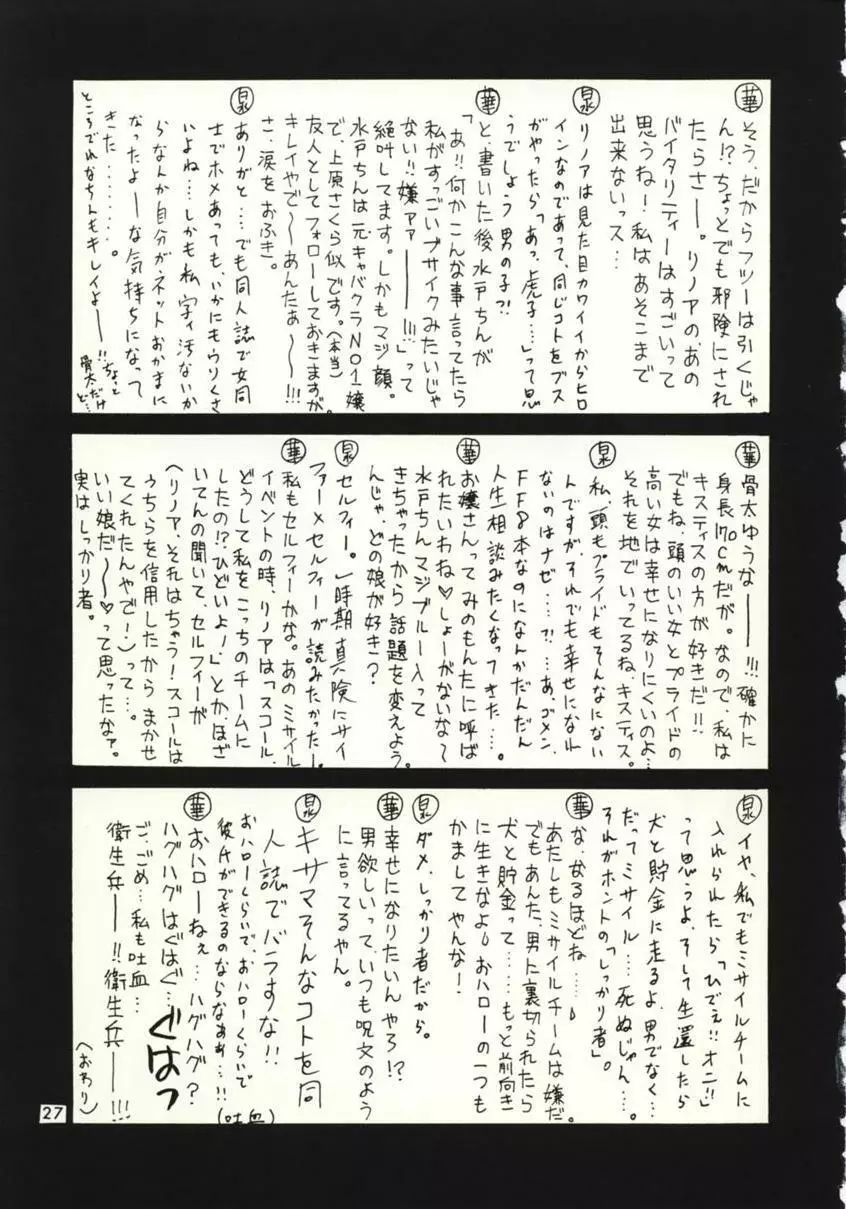 華 そう、だからフツーは引くじゃ
ん!?ちょっとでも邪険にされ
たらさー。リノアのあの
バイタリティーはすごいって
思うねー!私はあそこまで
出来ないっス…
泉 リノアは見た目カワイイからヒロ
インなのであって、同じコトをブス
がやったら「あっ、虎子…」って思
うでしょう男の子?!
華 と、書いた後水戸ちんが
「あ!!何かこんな事言ってたら
私がすっごいブサイクみたいじゃ
ない!!嫌ァァ━━!!!」って
絶叫してます。しかもマジ顔。
水戸ちんは元キャバクラNO1嬢
で、上原さくら似です。(本当)
友人としてフォローしておきますが、
キレイやで〜〜あんたぁ〜〜!!!
さ、涙をおふき。
泉 ありがと…でも同人誌で女同
士でホメあっても、いかにもウリくさ
いよね…しかも私、字ィ汚ないか
らなんか自分がネットおかまに
なったよーな気持ちになって
きた………。
ところでれなちんもキレイよ━━!!ちょっと
骨太だけ
ど…
華 骨太ゆうな━━!!!確かに
身長170cmだが。なので、私は
キスティスの方が好きだ!!
でもね、頭のいい女とプライドの
高い女は幸せになりにくいのよ…
それを地でいってるね、キスティス。
泉 私、頭もプライドもそんなにない
んですが、それでも幸せになれ
ないのはナゼ…?!…あ、ゴメン、
FF8本なのになんかだんだん
人生相談みたくなってきた…。
華 お嬢さんってみのもんたに呼ば
れたいわね♡しょーがないな〜
水戸ちんマジブルー入って
きちゃったから話題を変えよう。
んじゃ、どの娘が好き?
泉 セルフィー。一時期真険にサイ
ファー×セルフィーが読みたかったー。
華 私もセルフィーかな。あのミサイル
イベントの時、リノアは「スコール、
どうして私をこっちのチームに
したの!?ひどいよ!」とか、ほざ
いてんの聞いて、セルフィーが
(リノア、それはちゃう!スコールは
うちらを信用したからまかせ
てくれたんやで!)って…。
いい娘だ〜〜♡って思ったなァ。
実はしっかり者。
泉 イヤ、私でもミサイルチームに
入れられたら「ひでぇ!!オニ!!」
って思うよ、そして生還したら
犬と貯金に走るよ、男でなく…
だってミサイル…死ぬじゃん…。
それがホントの「しっかり者」。
華 な、なるほどね…
あたしもミサイルチームは嫌だ。
でもあんた、男に裏切られたら
犬と貯金って……もっと前向き
に生きなよ おハローの一つも
かましてやんな!
泉 ダメ、しっかり者だから。
華 幸せになりたいんやろ!?
男欲しいって、いつも呪文のよう
に言ってるやん。
泉 キサマそんなコトを同
人誌でバラすな!!
おハローくらいで、おハローくらいで
彼氏ができるのならなぁぁ…!!
(吐血)
華 おハローねぇ…ハグハグ?
ハグハグはぐはぐ…ぐはっ
ご、ごめ…私も吐血…
衛生兵━!!衛生兵━━!!!
(おわり)
27